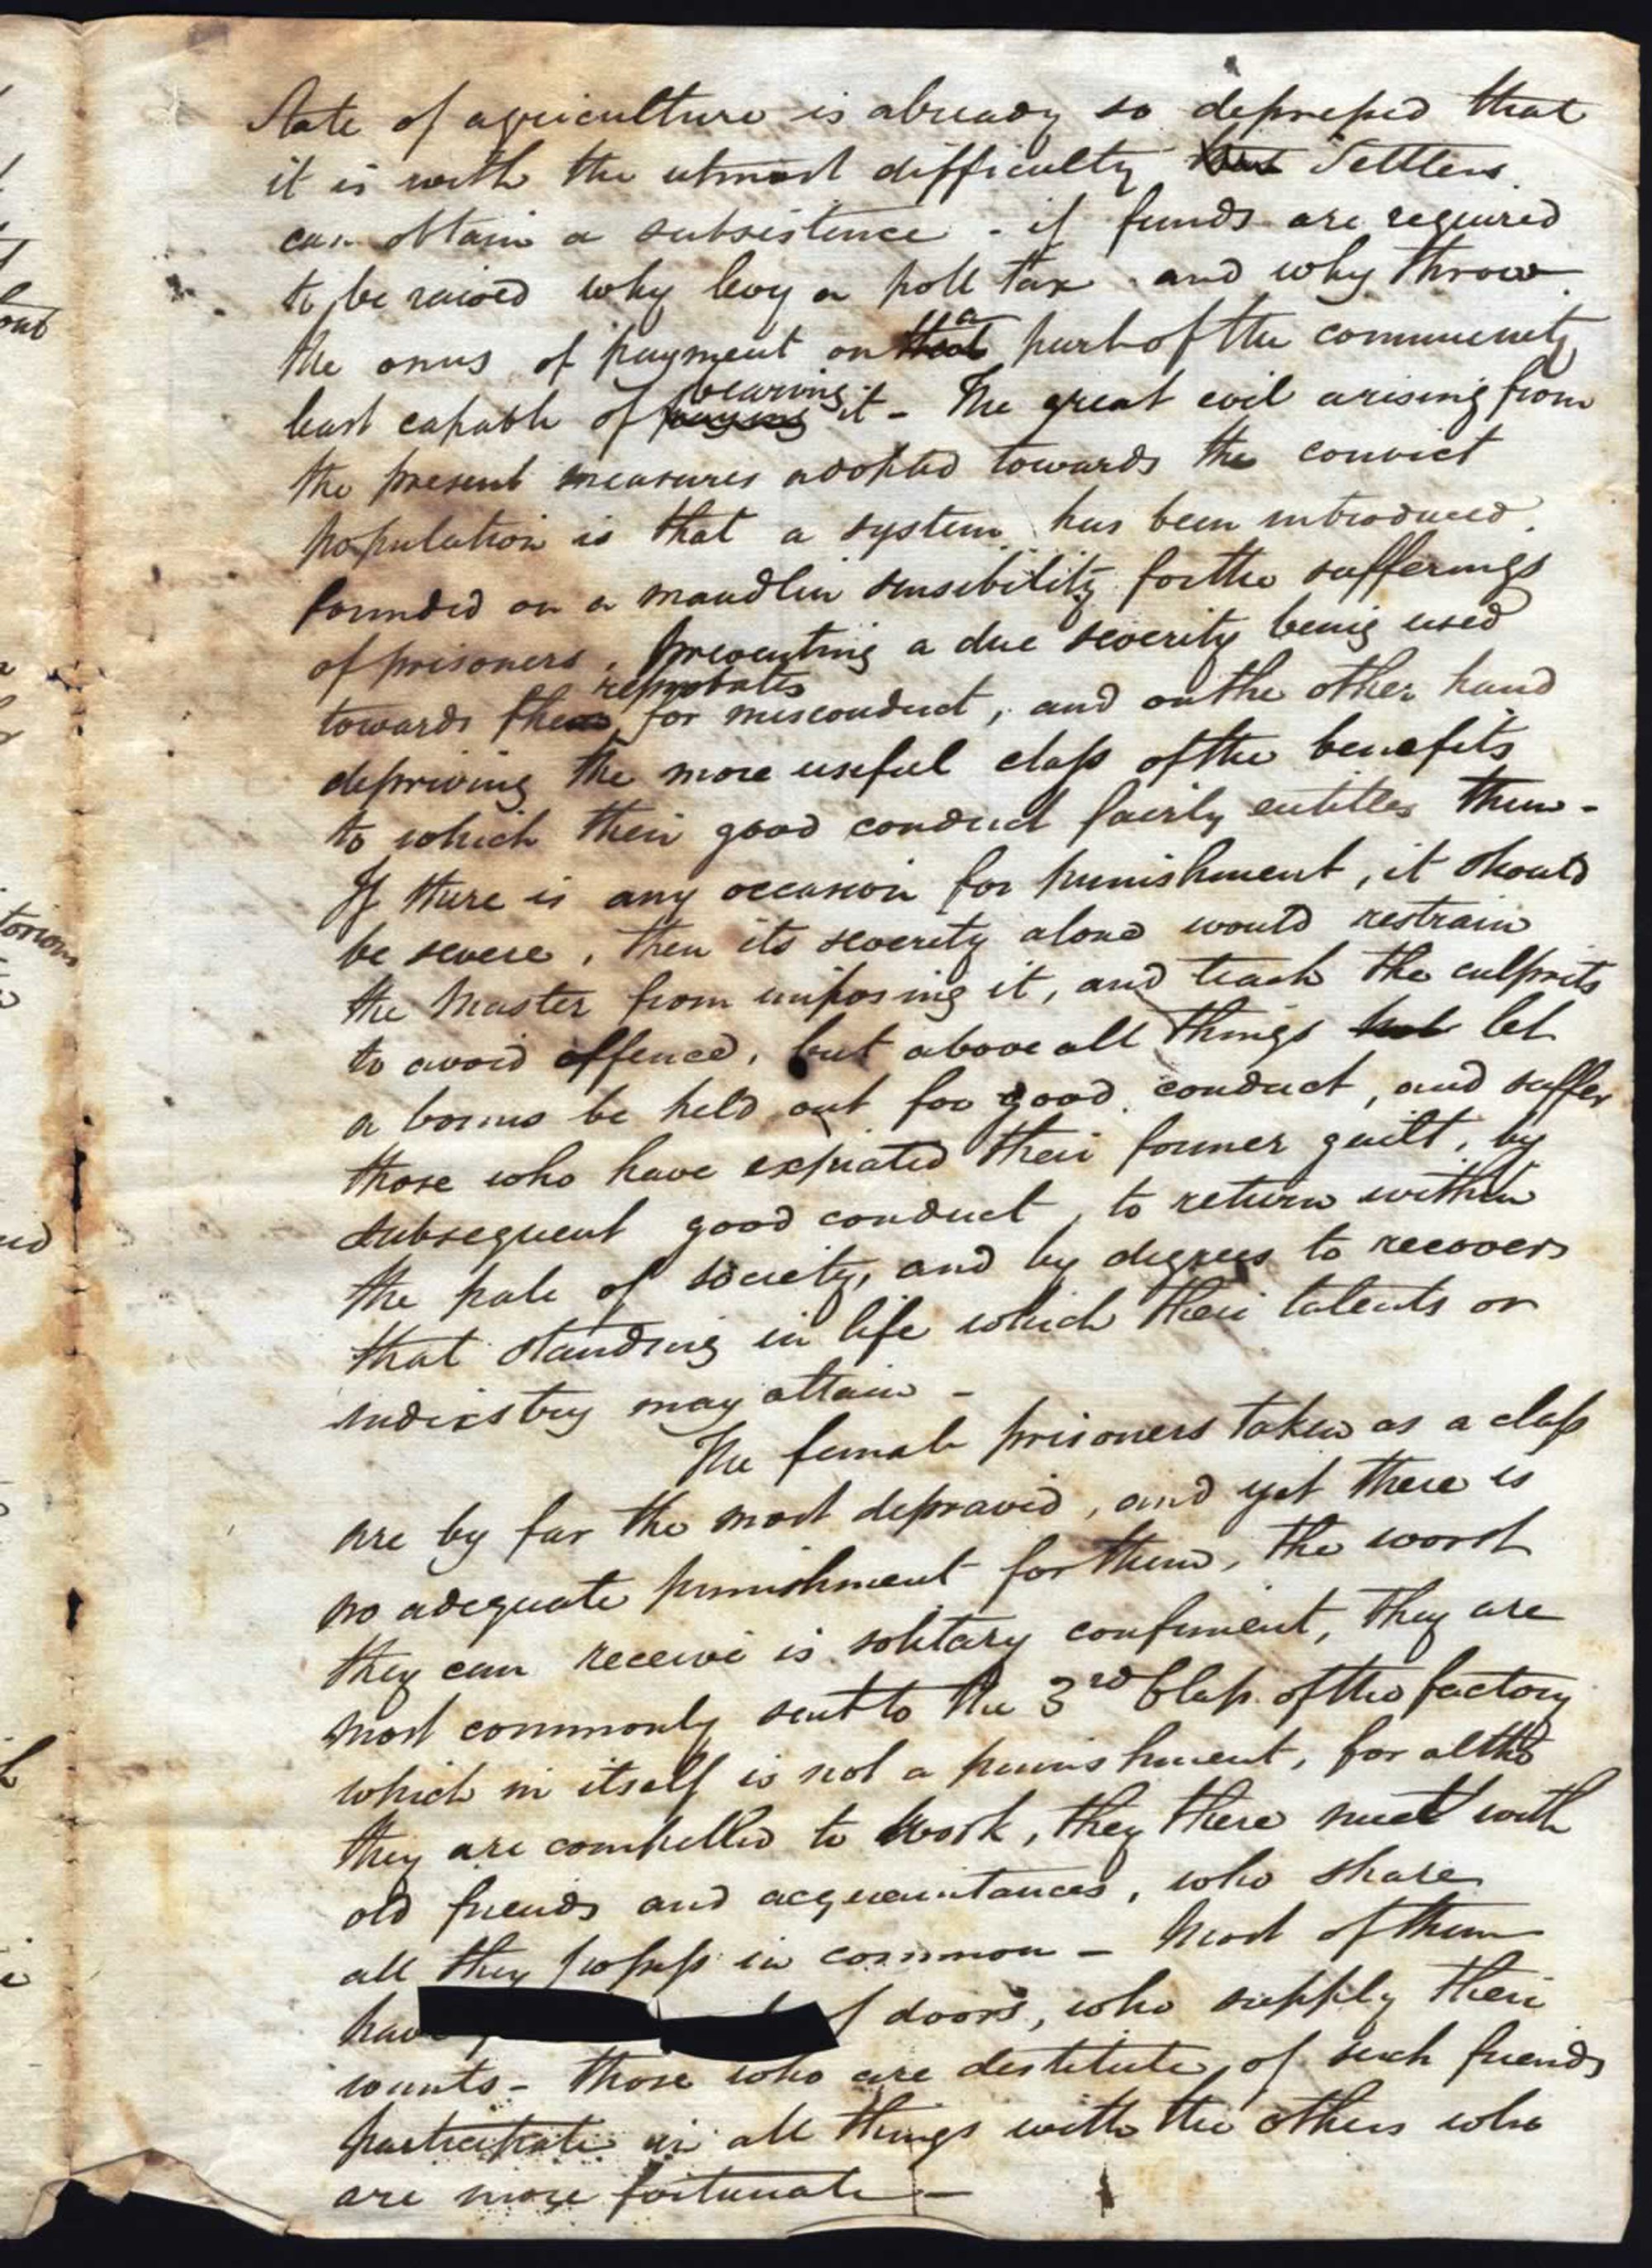 State of agriculture is already so depressed that
it is with the utmost difficulty that Settlers
can obtain a subsistence - if funds are required
to be raised why levy a poll tax and why throw
the onus of payment on that a part of the community
least capable of paying bearing it - The great evil arising from
the present measures adopted towards the convict
population is that a system has been introduced.
founded on a maudlin sensibility for the sufferings
of prisoners, preventing a due severity being used
towards them reprobates for misconduct, and on the other hand
depriving the more useful class of the benefits
to which their good conduct fairly entitles them -
If there is any occasion for punishment, it should
be severe, then its severity alone would restrain
the Master from imposing it, and teach the culprits
to avoid offence, but above all things let
a bonus be held out for good conduct, and suffer
those who have expiated their former guilt, by
subsequent good conduct, to return within
the pale of society, and by degrees to recover
that standing in life which their talents or
industry may attain -
The female prisoners taken as a class
are by far the most depraved, and yet there is
no adequate punishment for them, the worst
they can receive is solitary confinment, they are
most commonly sent to the 3rd Class of the factory
which in itself is not a punishment, for altho
they are compelled to work, they there meet with
old friends and acquaintances, who share
all they possess in common - Most of them
have doors, who supply their
wants - those who are destitute of such friends
participate in all things with the others who
are more fortunate -